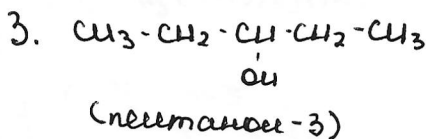 3. CH3-CH2-CH-CH2-CH3
OH
(пентанол-3)